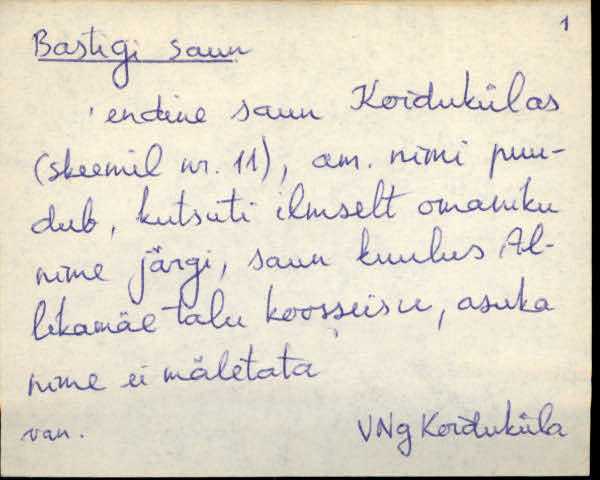 1
Bastigi saun
endine saun Koidukülas
(skeemil nr. 11), am. nimi puu-
dub, kutsuti ilmselt omaniku
nime järgi, saun kuulus Al-
likamäe talu koosseisu, asuka
nime ei mäletata
van. VNg Koiduküla